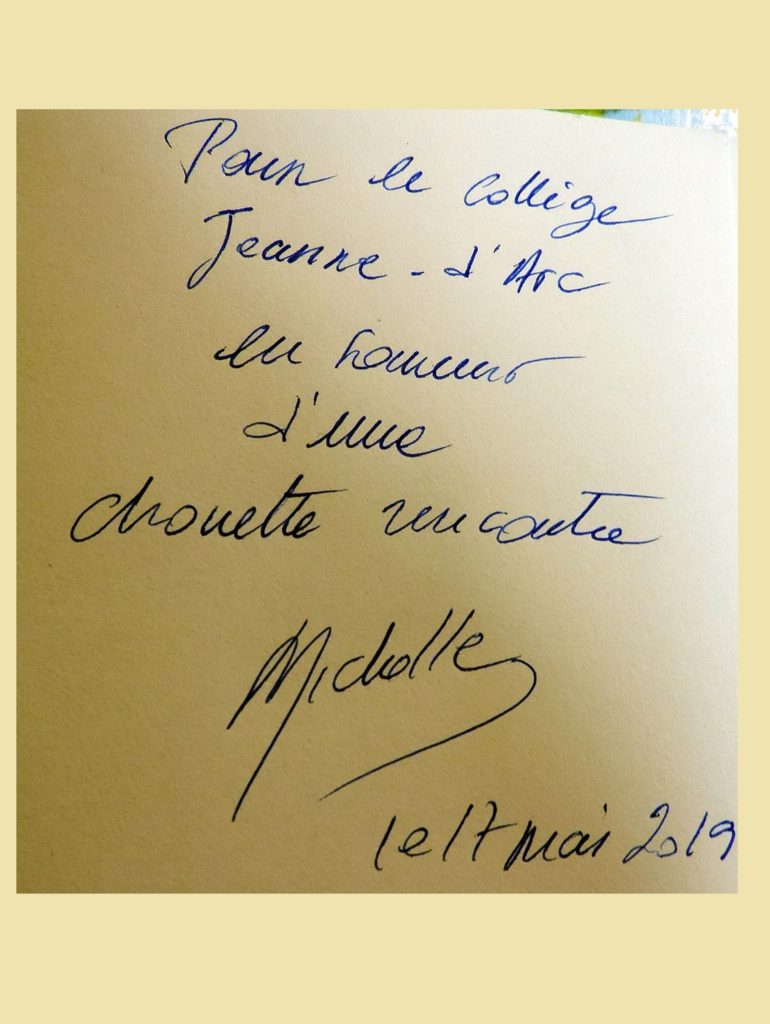 Pour le collège
Jeanne-d'Arc
en honneur
d'une
chouette rencontre
Michelle
le 17 mai 2019